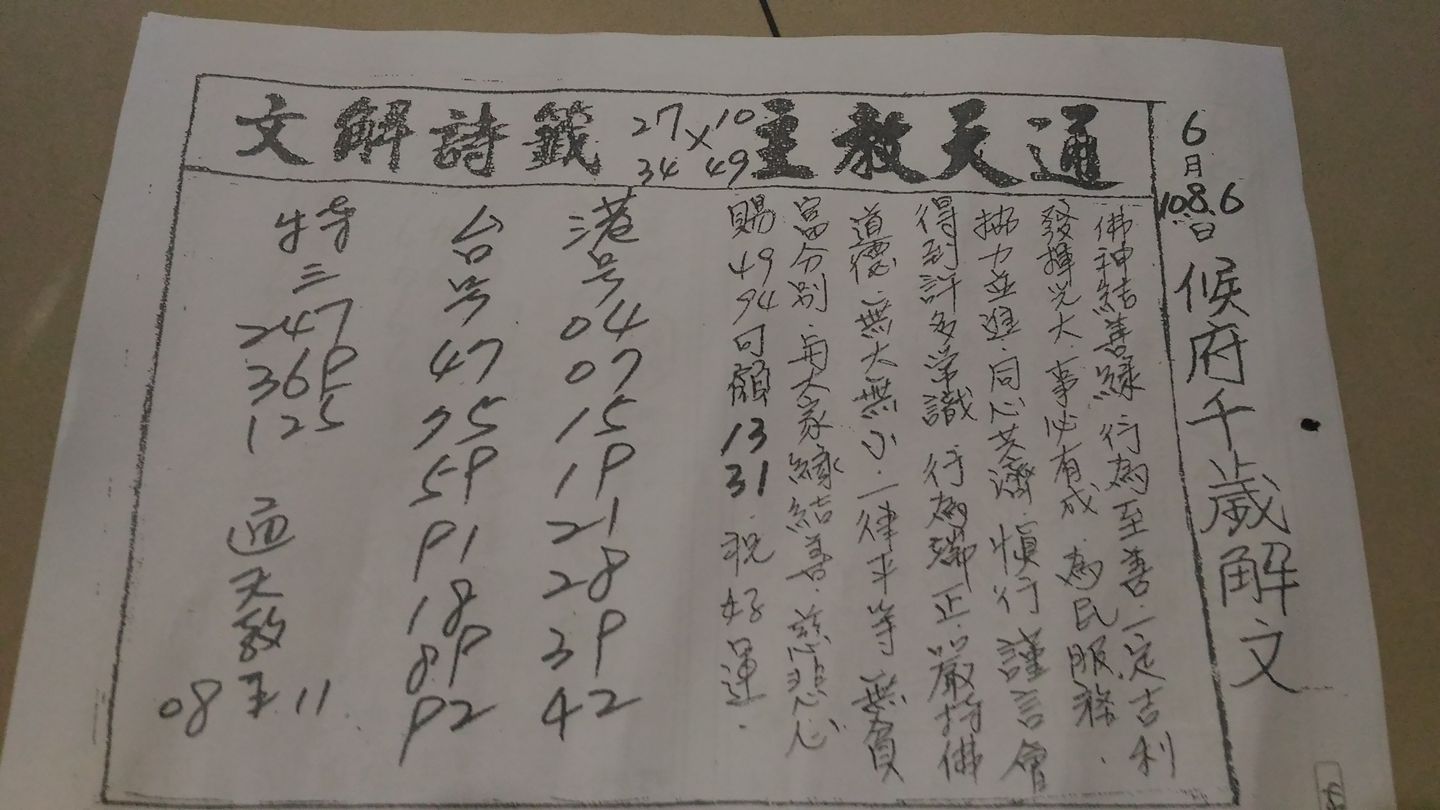 通天教主 27 10 × 34 49 籤詩解文
6月
108.6
日
候府千歲解文
佛神結善緣 行為至善 一定吉利
發揮光大 事必有成 為民服務.
拁力並進 同心共濟 慎行謹言會
得到許多常識 行為端正 嚴持佛
道德 無大無小 一律平等 無貧
富分別 與大家緣結善 慈悲心
賜 49 94 可願 13 31 祝好運.
港号 04 07 15 19 21 28 39 42
台号 47 75 59 91 18 89 92
特三 247 369 125
通天教主
08 11